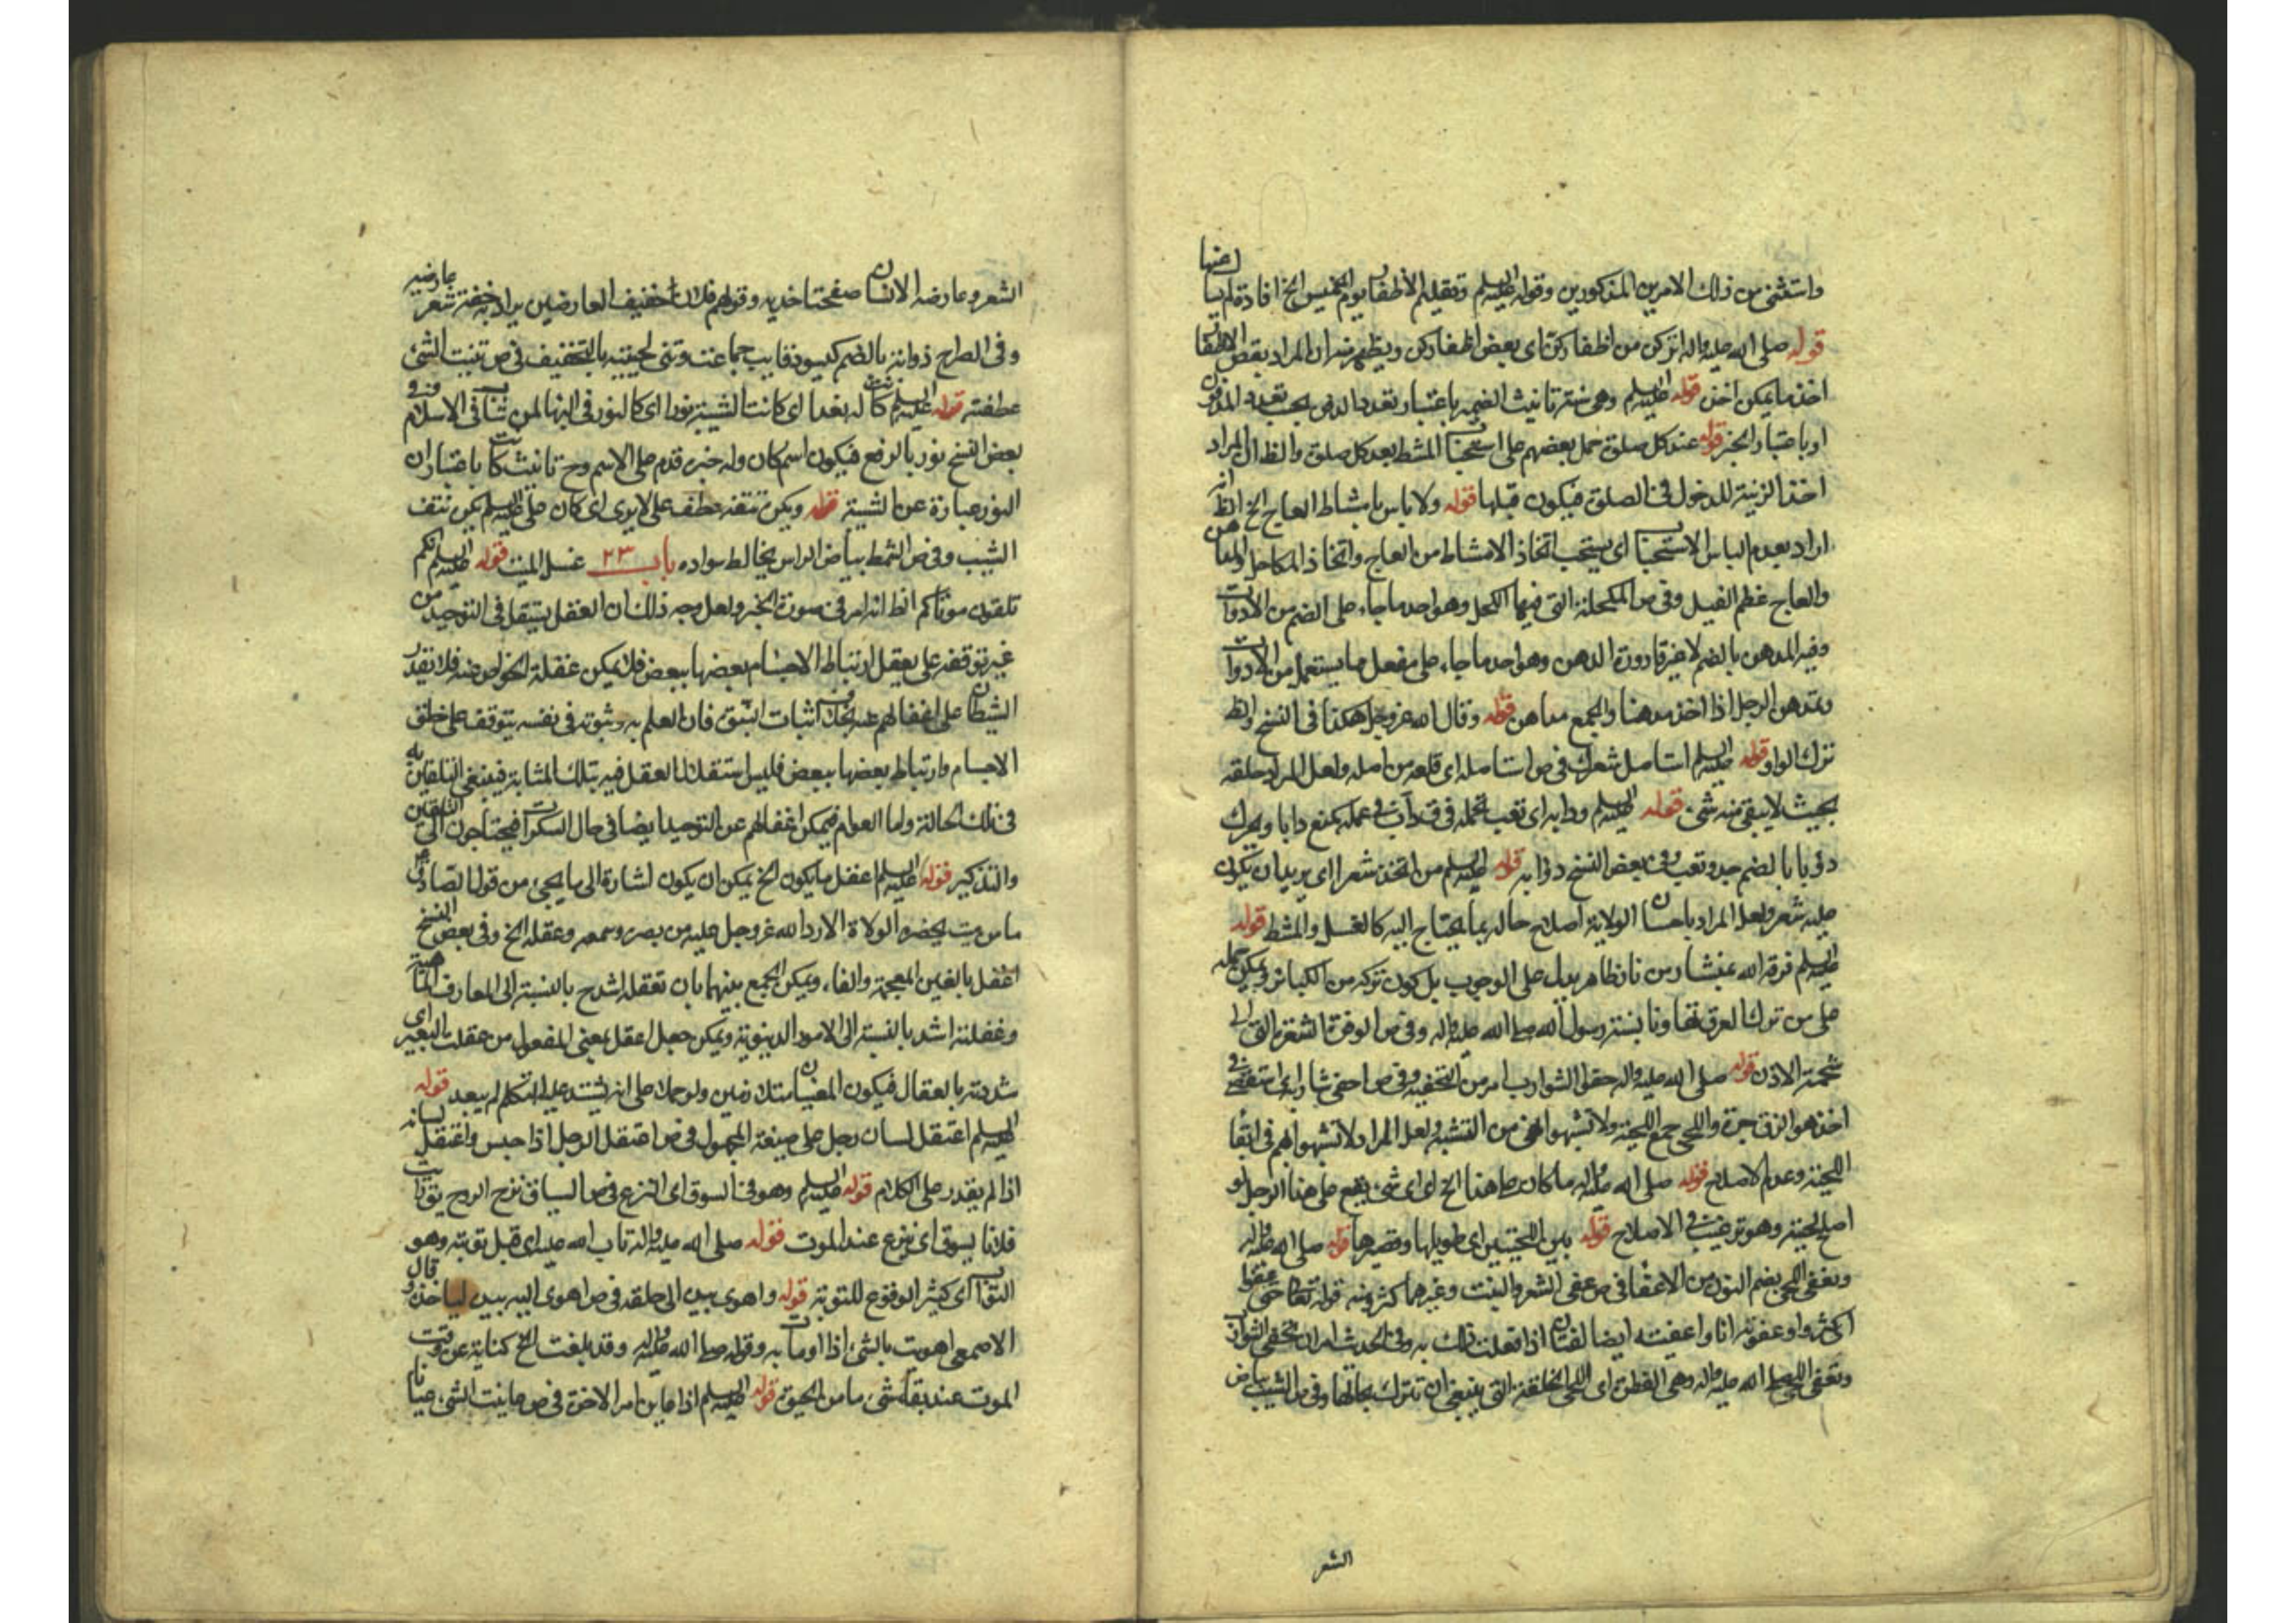 واستثنى من ذلك الامرين المذكورين وقوله عليه السلم وتقليم الأظفار يوم الخميس الخ افادة
قوله صلى الله عليه واله اتركن من اظفاركن اى بعض اظفاركن ويظهر منه ان المراد بقص الاظفار
اخذ ما يمكن اخذه قوله عليه السلم وهى سنة تانيث الضمير باعتبار تعدد
او باعتبار الخبر قوله عند كل صلوة حمل بعضهم على استحباب المشط بعد كل صلوة والظ ان المراد
اخذ الزينة للدخول فى الصلوة فيكون قبلها قوله ولا باس بامشاط العاج الخ الظ انه
اراد بعدم الباس الاستحباب اى يستحب اتخاذ الامشاط من العاج واتخاذ المكاحل والمداهن
والعاج عظم الفيل وفى ص المكحلة التى فيها الكحل وهو احد ما جاء على الضم من الادوات
وفيه المدهن بالضم لا غير قارورة الدهن وهو احد ما جاء على مفعل مما يستعمل من الادوات
وتمدهن الرجل اذا اخذ مدهنا والجمع مداهن قوله وقال الله عز وجل هكذا فى النسخ والظ
ترك الواو قوله عليه السلم استاصل شعرك فى ص استاصله اى قلعه من اصله ولعل المراد حلقه
بحيث لا يبقى منه شئ قوله عليه السلم ودابه اى تعب تحمله فى ق داب فى عمله كمنع دابا ويحرك
دؤبا بالضم جد وتعب وفى بعض النسخ دوابه قوله عليه السلم من اتخذ شعرا اى يريد ان يكون
عليه شعر ولعل المراد باحسان الولاية اصلاح حاله بما يحتاج اليه كالغسل والمشط قوله
عليه السلم فرقه الله بمنشار من نار ظاهره يدل على الوجوب بل كون تركه من الكبائر ويمكن حمله
على من ترك الفرق تهاونا بسنة رسول الله صلى الله عليه واله وفى ص الوفرة الشعرة الى
شحمة الاذن قوله صلى الله عليه واله حفوا الشوارب امر من الحف وفى ص احفى شاربه اى استقصى فى
اخذه والزق جزه واللحى جمع اللحية ولا تشبهوا من التشبه ولعل المراد لا تشبهوا بهم فى ابقاء
اللحية وعدم الاصلاح قوله صلى الله عليه واله ما كان على هذا الخ اى اى شئ يقع على هذا الرجل لو
اصلح لحيته وهو ترغيب فى الاصلاح قوله بين اللحيتين اى طويلها وقصيرها قوله صلى الله عليه واله
ونعفى اللحى بضم النون من الاعفاء فى ص عفى الشعر والنبت وغيرهما كثر ومنه قوله تعالى حتى عفوا
اى كثروا وعفوته انا واعفيته ايضا لغتان اذا فعلت ذلك به وفى الحديث امر ان تحفى الشوارب
وتعفى اللحى صلى الله عليه واله وهى الفطرة اى اللحى الخلقة التى ينبغى ان تترك بحالها وفى ص الشيب بياض
الشعر
الشعر وعارضة الانسان صفحتا خديه وقولهم فلان خفيف العارضين يراد به خفة شعر عارضيه
وفى الصراح ذوابة بالضم كيسو ذوايب جماعت وثنى لحيته بالتخفيف فى ص ثنيت الشئ
عطفته قوله عليه السلم كانت له بعد اى كانت الشيبة نورا اى كالنور فى النهار لمن شاب فى الاسلام وفى
بعض النسخ نور بالرفع فيكون اسم كان وله خبره قدم على الاسم وح تانيث كانت باعتبار ان
النور عبارة عن الشيبة قوله ويكره نتفه عطف على لا يرى اى كان على عليه السلم يكره نتف
الشيب وفى ص الشمط بياض الراس يخالط سواده باب ٢٣ غسل الميت قوله عليه السلم انكم
تلقنون موتاكم الظ انه امر فى صورة الخبر ولعل وجه ذلك ان العقل يستقل فى التوحيد من
غير توقفه على تعقل ارتباط الاجسام بعضها ببعض فلا يمكن غفلة الخواص عنه فلا يقدر
الشيطان على اغفالهم عنه بخلاف اثبات النبوة فان العلم به وثبوته فى نفسه يتوقف على خلق
الاجسام وارتباط بعضها ببعض فليس استقلال العقل فيه بتلك المثابة فينبغى التلقين به
فى تلك الحالة واما العوام فيمكن اغفالهم عن التوحيد ايضا فى حال السكرات فيحتاجون الى التلقين
والتذكير قوله عليه السلم اعقل ما يكون الخ يمكن ان يكون اشارة الى ما يجئ من قول الصادق ع
ما من ميت يحضره الولاة الا رد الله عز وجل عليه من بصره وسمعه وعقله الخ وفى بعض النسخ
اغفل بالغين المعجمة والفاء ويمكن الجمع بينهما بان تعقله اشد ح بالنسبة الى المعارف
وغفلته اشد بالنسبة الى الامور الدنيوية ويمكن جعل اعقل بمعنى المفعول من عقلت البعير اى
شددته بالعقال فيكون المعنيان متلازمين ولو حمل على انه يشتد عليه التكلم لم يبعد قوله
عليه السلم اعتقل لسان رجل على صيغة المجهول فى ص اعتقل الرجل اذا حبس واعتقل لسانه
اذا لم يقدر على الكلام قوله عليه السلم وهو فى السوق اى النزع فى ص السياق نزع الروح يق رايت
فلانا يسوق اى ينزع عند الموت قوله صلى الله عليه واله تاب الله عليه اى قبل توبته وهو
التواب اى كثير الوقوع للتوبة قوله واهوى بيده الى حلقه فى ص اهوى اليه بيده لياخذه وقال
الاصمعى اهويت بالشئ اذا اومات به وقوله صلى الله عليه واله وقد بلغت الخ كناية عن وقت
الموت عند بقاء شئ ما من الحيوة قوله عليه السلم اذا عاين امر الاخرة فى ص عاينت الشئ عيانا